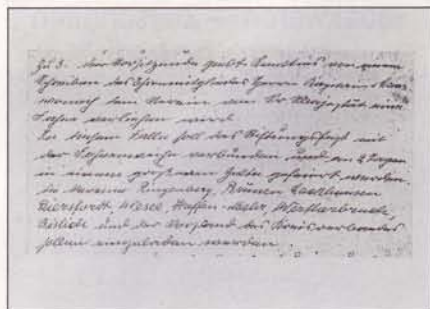 Zu 3. der Vorsitzende giebt Kenntnis von einem
Schreiben des Ehrenmitgliedes Herrn
wonach dem Verein von Sr. Majestät eine
Fahne verliehen wird.
In diesem Falle soll das Stiftungsfest mit
der Fahnenweihe verbunden und an 2 Tagen
in einem großen Zelte gefeiert werden.
Die Vereine Ringenberg, Brünen,
Diersfordt, Wesel, Haffen-Mehr,
Bislich und der Vorstand des Kreisverbandes
sollen eingeladen werden.